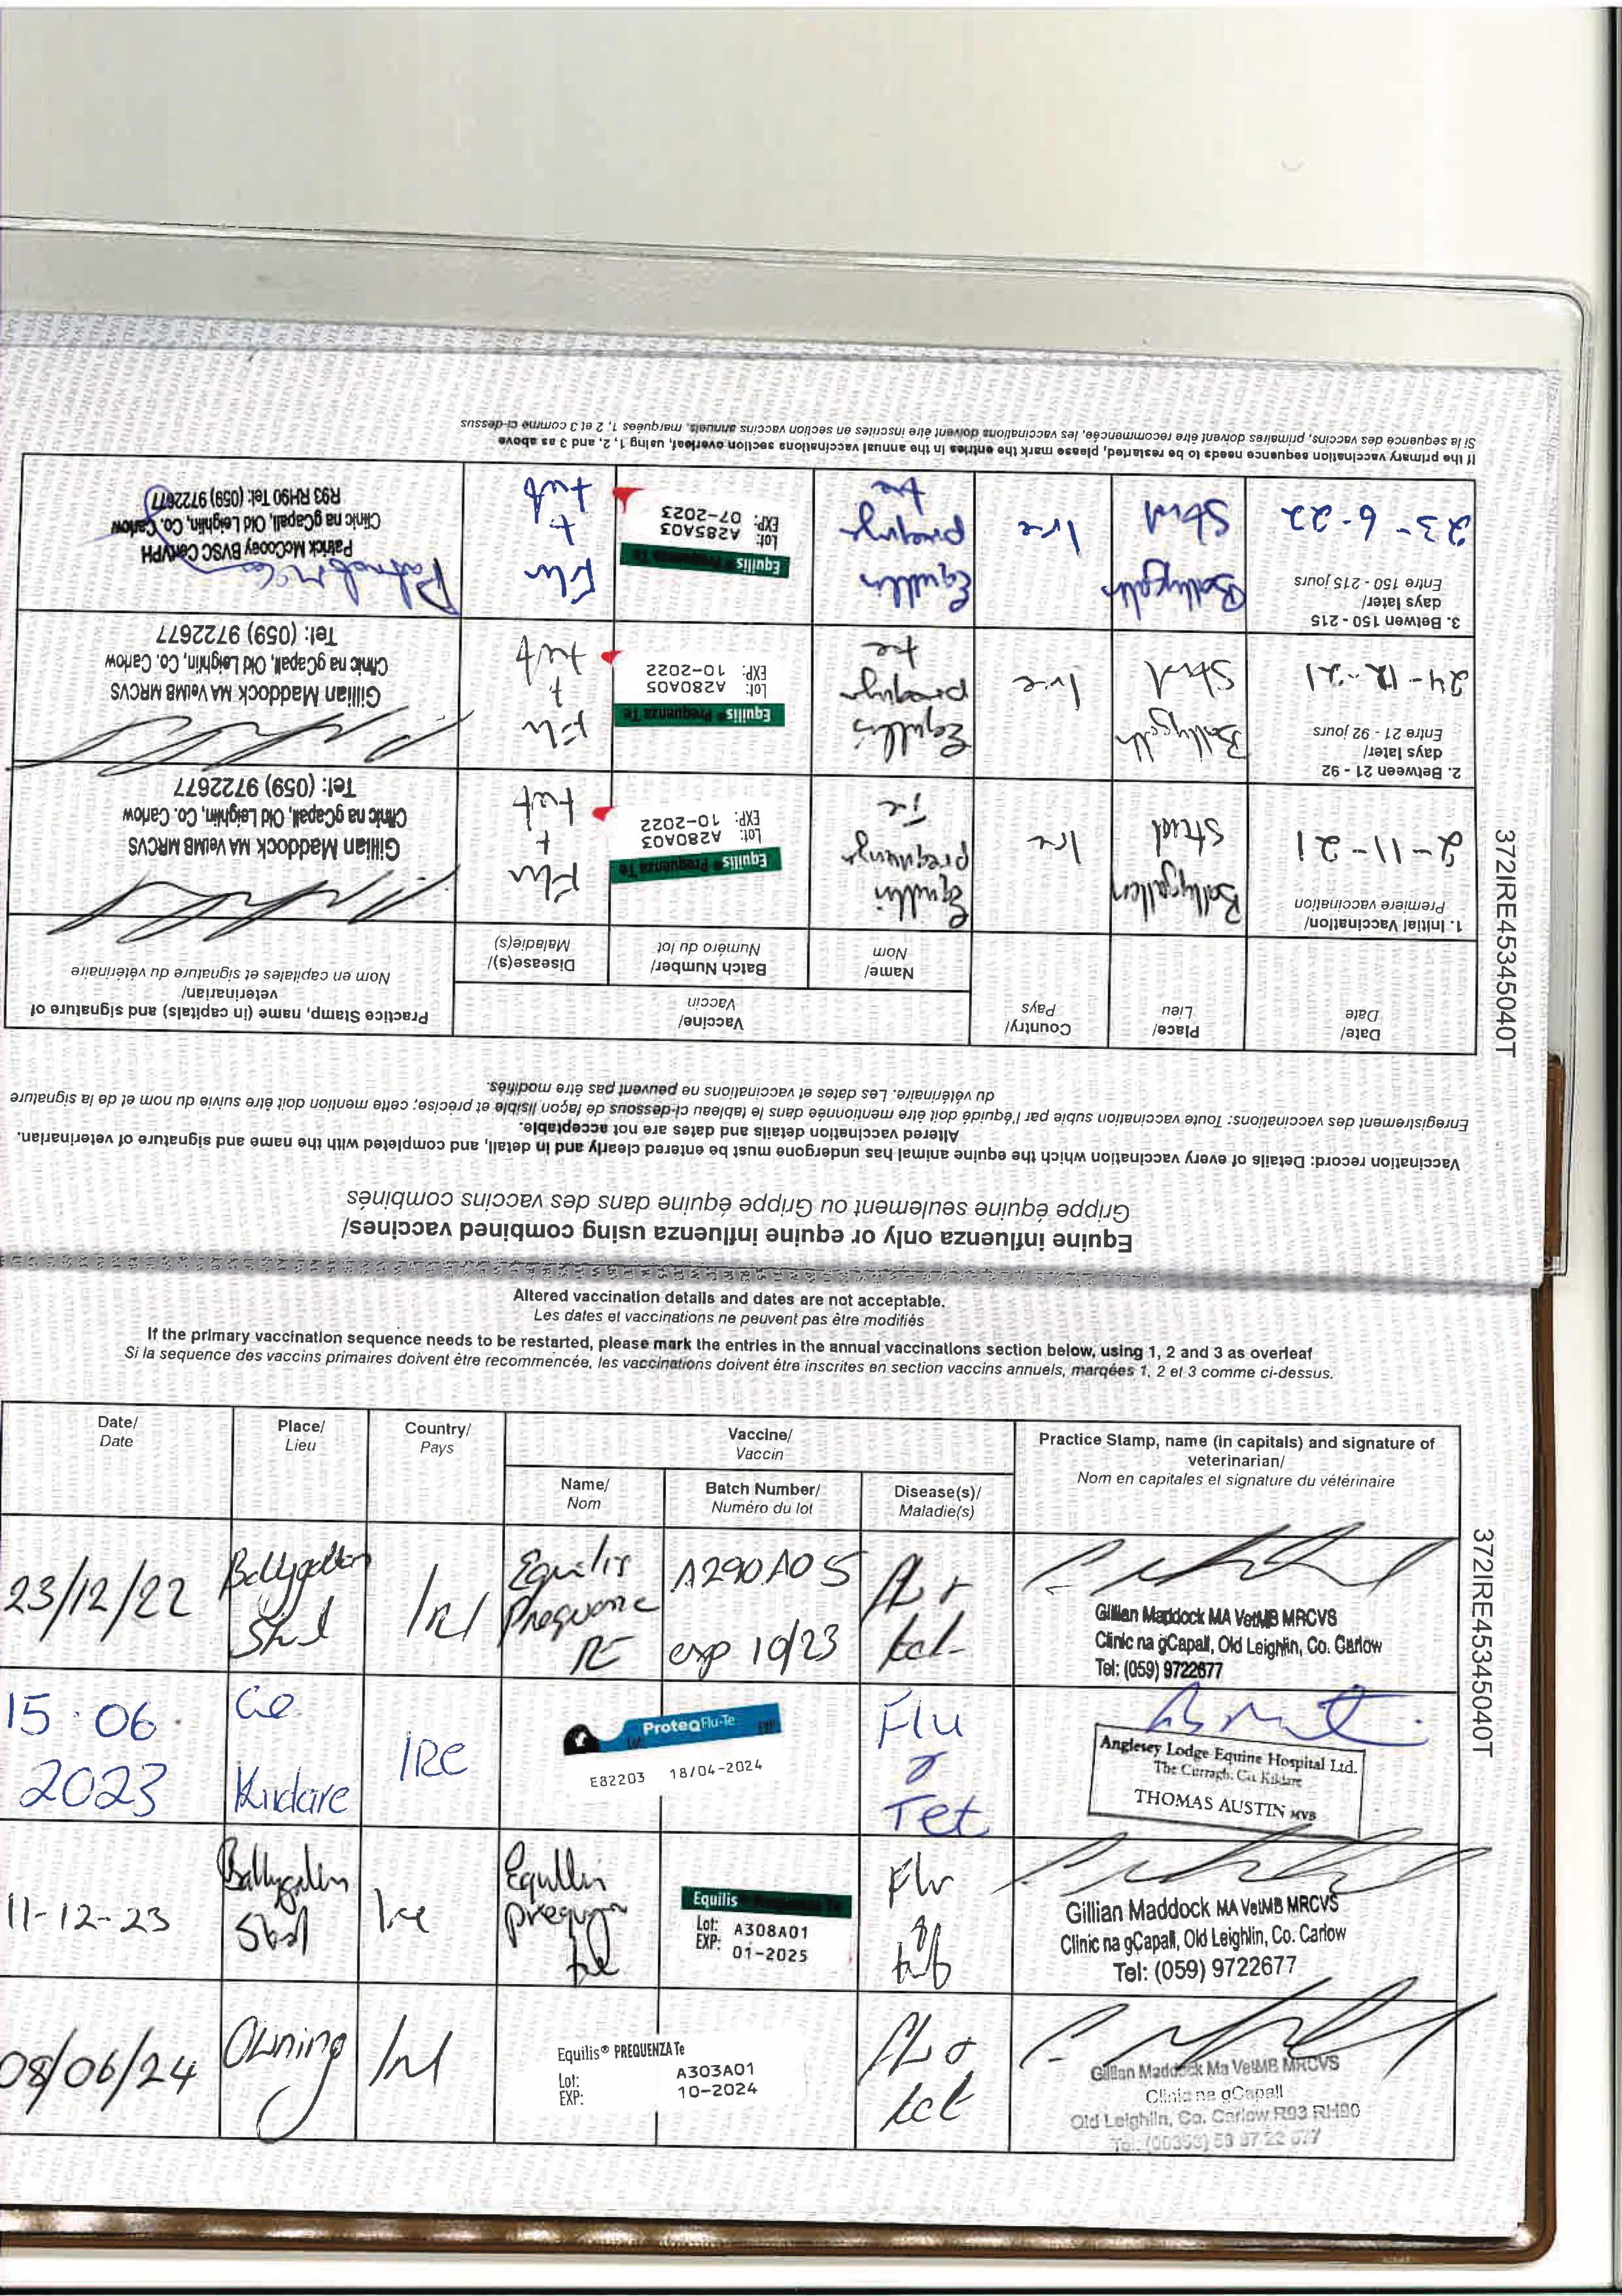 Equine influenza only or equine influenza using combined vaccines/
Grippe équine seulement ou Grippe équine dans des vaccins combinés
Vaccination record: Details of every vaccination which the equine animal has undergone must be entered clearly and in detail, and completed with the name and signature of veterinarian.
Altered vaccination details and dates are not acceptable.
Enregistrement des vaccinations: Toute vaccination subie par l'équidé doit être mentionnée dans le tableau ci-dessous de façon lisible et précise; cette mention doit être suivie du nom et de la signature
du vétérinaire. Les dates et vaccinations ne peuvent pas être modifiés.
372IRE45345040T
Date/
Date
Place/
Lieu
Country/
Pays
Vaccine/
Vaccin
Name/
Nom
Batch Number/
Numéro du lot
Disease(s)/
Maladie(s)
Practice Stamp, name (in capitals) and signature of
veterinarian/
Nom en capitales et signature du vétérinaire
1. Initial Vaccination/
Première vaccination
2-11-21
Stud
Ire
Equilis Prequenza Te
Lot: A280A03
EXP: 10-2022
Flu
+
tet
Gillian Maddock MA VetMB MRCVS
Clinic na gCapall, Old Leighlin, Co. Carlow
Tel: (059) 9722677
2. Between 21 - 92
days later/
Entre 21 - 92 jours
24-12-21
Stud
Ire
Equilis
Equilis® Prequenza Te
Lot: A280A05
EXP: 10-2022
Flu
+
tet
Gillian Maddock MA VetMB MRCVS
Clinic na gCapall, Old Leighlin, Co. Carlow
Tel: (059) 9722677
3. Betwen 150 - 215
days later/
Entre 150 - 215 jours
23-6-22
Stud
Ire
Equilis® Prequenza Te
Lot: A285A03
EXP: 07-2023
Flu
+
tet
Patrick McCooey BVSC CertVPH
Clinic na gCapall, Old Leighlin, Co. Carlow
R93 RH90 Tel: (059) 9722677
If the primary vaccination sequence needs to be restarted, please mark the entries in the annual vaccinations section overleaf, using 1, 2, and 3 as above
Si la sequence des vaccins, primaires doivent être recommencée, les vaccinations doivent être inscrites en section vaccins annuels, marquées 1, 2 et 3 comme ci-dessus
Altered vaccination details and dates are not acceptable.
Les dates et vaccinations ne peuvent pas être modifiés
If the primary vaccination sequence needs to be restarted, please mark the entries in the annual vaccinations section below, using 1, 2 and 3 as overleaf
Si la sequence des vaccins primaires doivent être recommencée, les vaccinations doivent être inscrites en section vaccins annuels, marqées 1, 2 et 3 comme ci-dessus.
372IRE45345040T
Date/
Date
Place/
Lieu
Country/
Pays
Vaccine/
Vaccin
Name/
Nom
Batch Number/
Numéro du lot
Disease(s)/
Maladie(s)
Practice Stamp, name (in capitals) and signature of
veterinarian/
Nom en capitales et signature du vétérinaire
23/12/22
Stud
Irl
Equilis
A290A05
exp 10/23
Flu +
tet
Gillian Maddock MA VetMB MRCVS
Clinic na gCapall, Old Leighlin, Co. Carlow
Tel: (059) 9722677
15.06.
2023
Co
Kildare
IRE
ProteqFlu-Te
E82203 18/04-2024
Flu
&
Tet
Anglesey Lodge Equine Hospital Ltd.
The Curragh, Co. Kildare
THOMAS AUSTIN MVB
11-12-23
Stud
Ire
Equilis Prequenza Te
Lot: A308A01
EXP: 01-2025
Flu
&
tet
Gillian Maddock MA VetMB MRCVS
Clinic na gCapall, Old Leighlin, Co. Carlow
Tel: (059) 9722677
08/06/24
Owning
Irl
Equilis® PREQUENZA Te
Lot: A303A01
EXP: 10-2024
Flu +
tet
Gillian Maddock Ma VetMB MRCVS
Clinic na gCapall
Old Leighlin, Co. Carlow R93 RH90